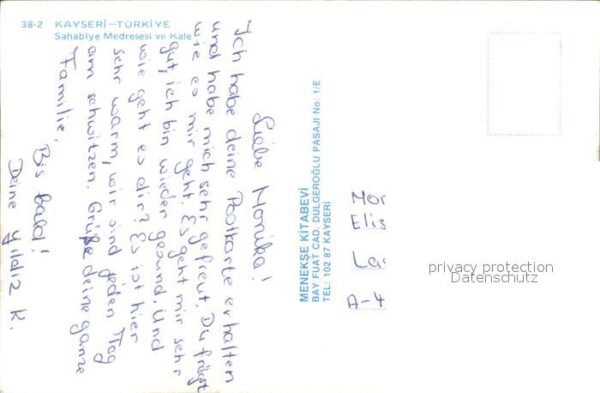 38-2 KAYSERİ-TÜRKİYE
Sahabiye Medresesi ve Kale
Liebe Monika!
Ich habe deine Postkarte erhalten
und habe mich sehr gefreut. Du frägst
wie es mir geht. Es geht mir sehr
gut, ich bin wieder gesund. Und
wie geht es dir? Es ist hier
sehr warm, wir sind jeden Tag
am schwitzen. Grüße deine ganze
Familie.
Bis bald!
Deine Yıldız K.
MENEKŞE KİTABEVİ
BAY FUAT CAD. DULGEROĞLU PASAJI No: 1/E
TEL: 102 87 KAYSERİ
Mor
Elis
Las
A-4
privacy protection
Datenschutz